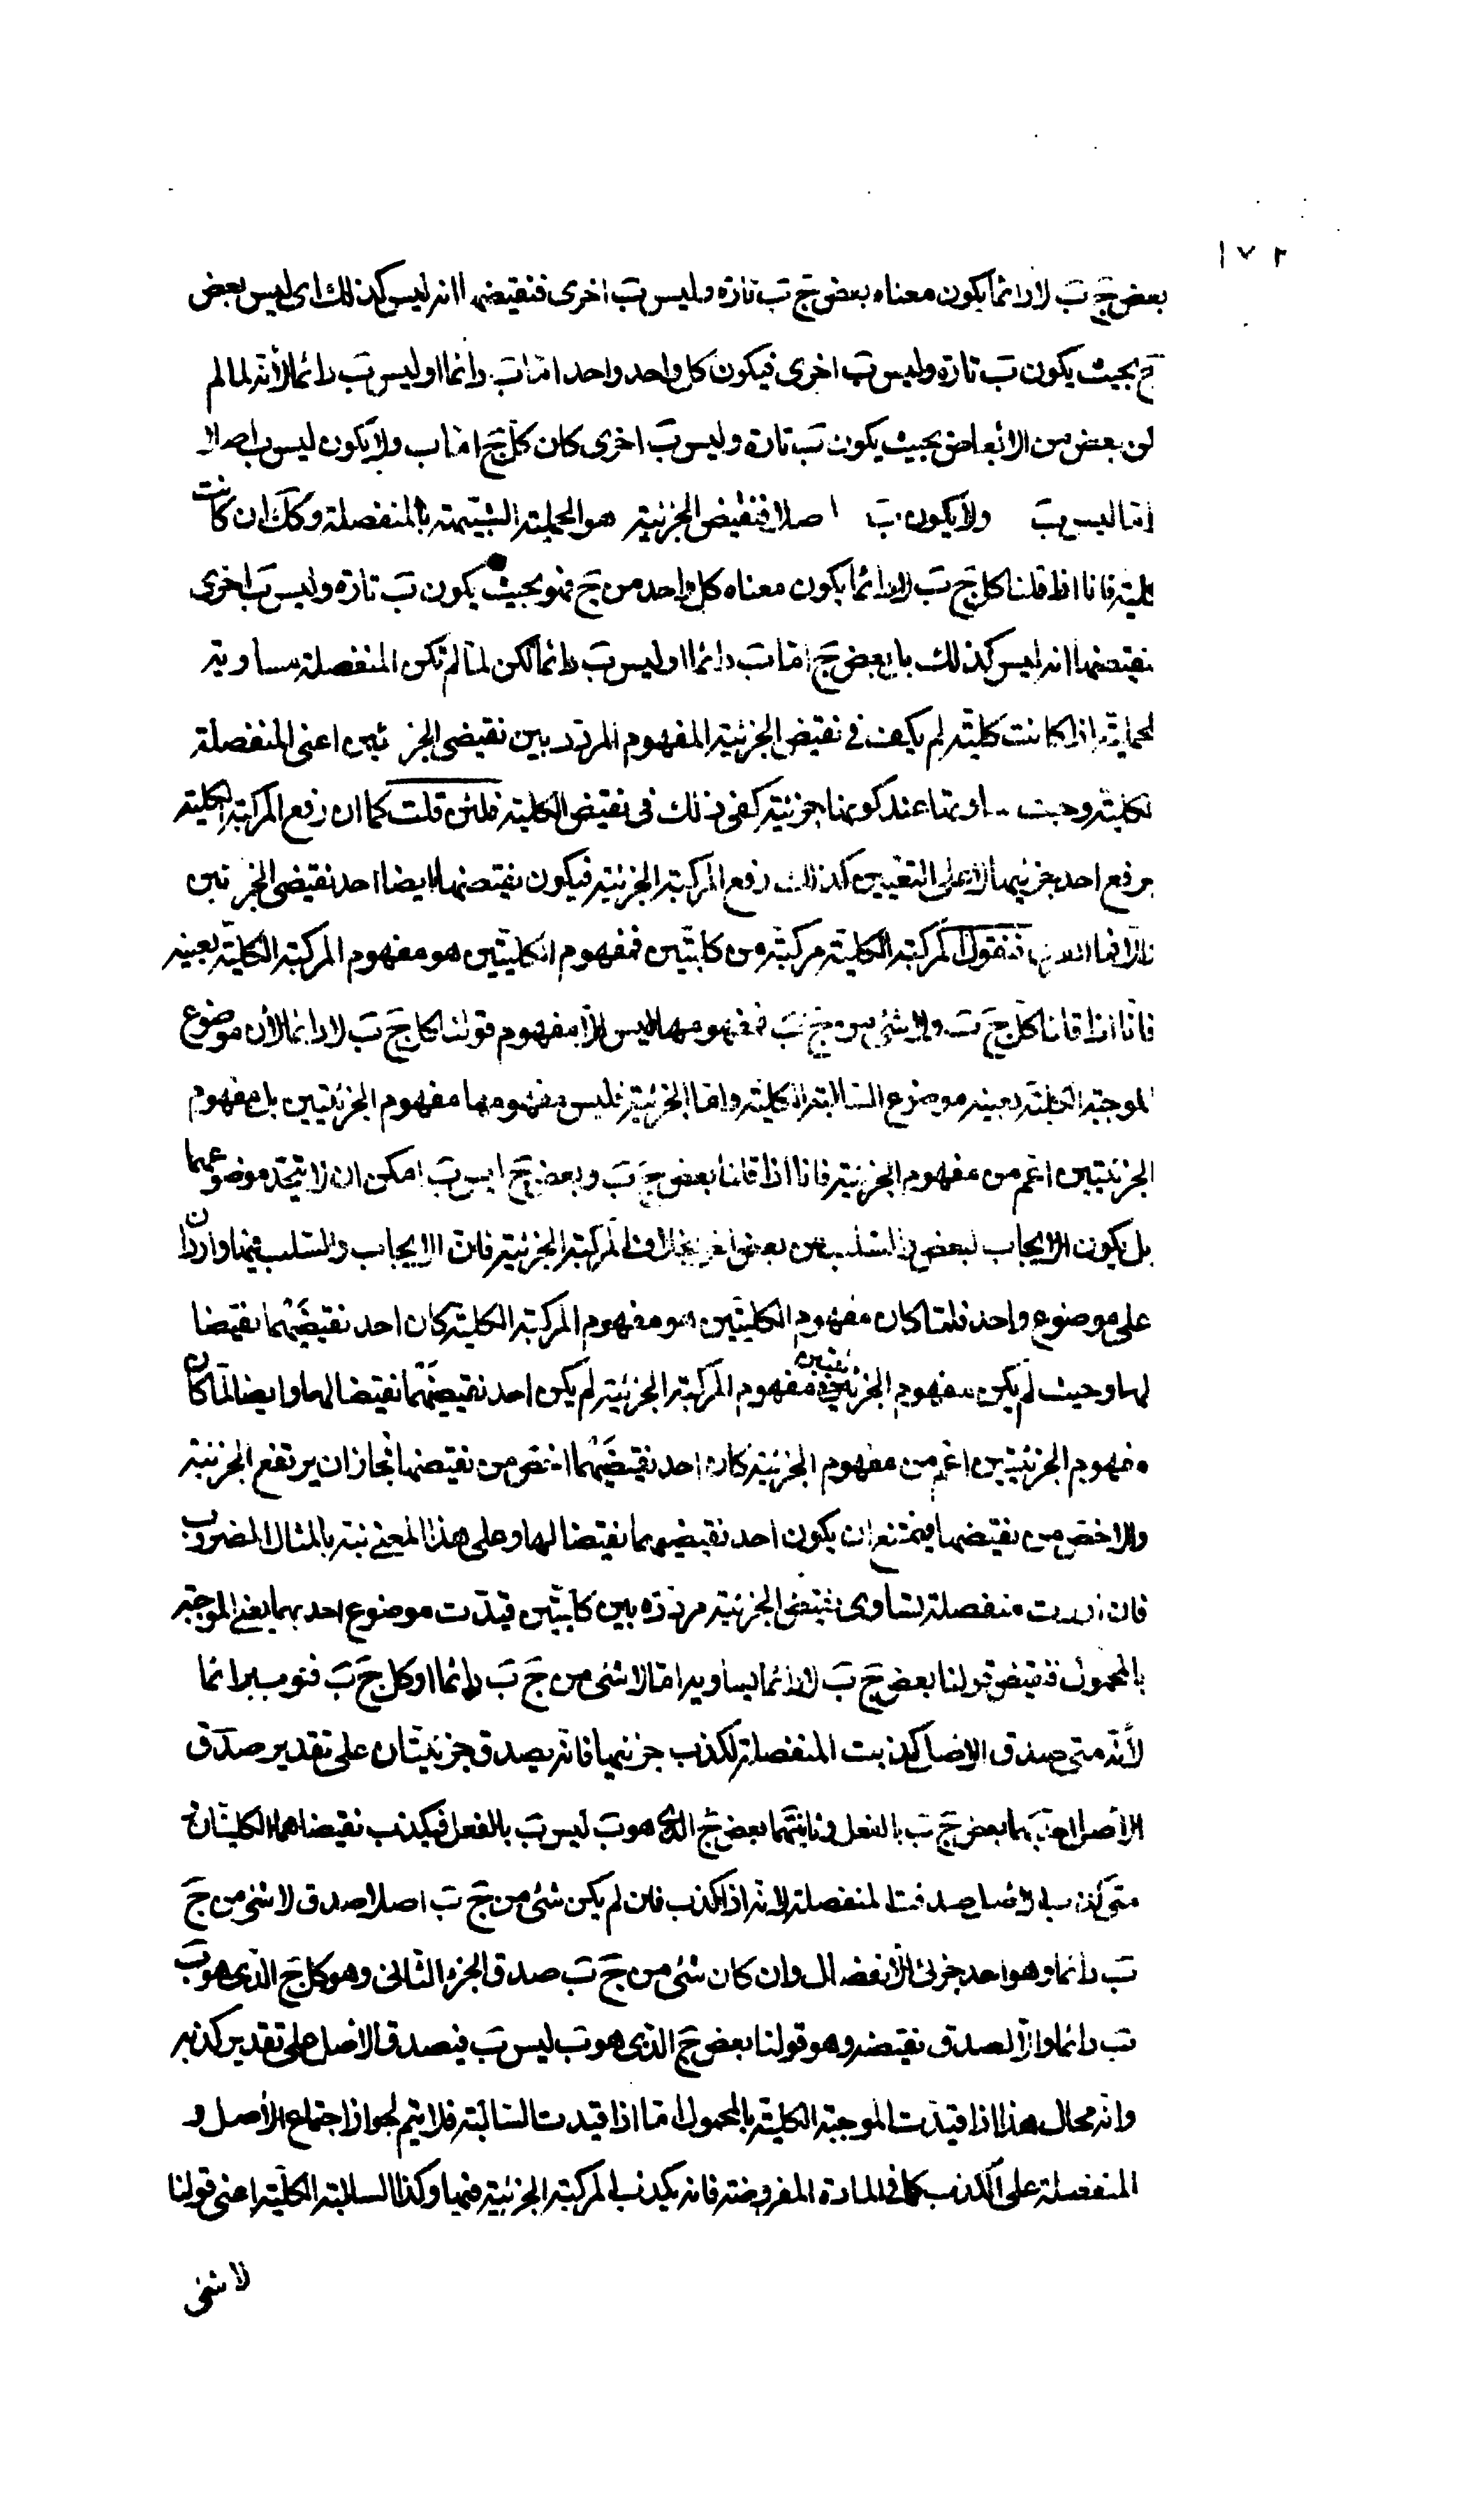 ١٧٢
بعض جَ بَ لا دائما يكون معناه بعض جَ بَ تارة وليس بَ اخرى فنقيضها انه ليس كذلك اى ليس بعض
جَ بحيث يكون بَ تارة وليس بَ اخرى فيكون كل واحد واحد اما بَ دائما او ليس بَ دائما لأنه لما لم
بعض من الابعاض بحيث يكون بَ تارة وليس بَ اخرى كان كل جَ اما ب ولا يكون ليس ب اصلا
اما ليس بَ ولا يكون بَ اصلا فنقيض الجزئية هو الحملية الشبيهة بالمنفصلة وكك ان كانت
كلية فانا اذا قلنا كل جَ بَ لا دائما يكون معناه كل واحد من جَ فهو بحيث يكون بَ تارة وليس بَ اخرى
نقيضها انه ليس كذلك بل بعض جَ اما بَ دائما او ليس بَ دائما لكن لما لم تكن المنفصلة مساوية
لحملية اذا كانت كلية لم يكف فى نقيض الجزئية المفهوم المردد بين نقيضى الجزئين اعنى المنفصلة
لكلية وحيث ساوتها عند كونها جزئية كفى ذلك فى نقيض الكلية فلئن قلت كما ان رفع المركبة الكلية
برفع احد جزئيها لا على التعيين كذلك رفع المركبة الجزئية فيكون نقيضها ايضا احد نقيضى الجزئين
فنقول المركبة الكلية مركبة من كليتين فمفهوم الكليتين هو مفهوم المركبة الكلية بعينه
فانا اذا قلنا كل جَ بَ ولا شئ من جَ بَ فمفهومهما ليس الا مفهوم قولنا كل جَ بَ لا دائما لأن موضوع
الموجبة الكلية بعينه موضوع السالبة الكلية واما الجزئية فليس مفهومها مفهوم الجزئيتين بل مفهوم
الجزئيتين اعم من مفهوم الجزئية فانا اذا قلنا بعض جَ بَ وبعض جَ ليس بَ امكن ان لا يتحد موضوعهما
بل يكون الايجاب لبعض والسلب عن بعض اخر بخلاف المركبة الجزئية فان الايجاب والسلب فيها واردان
على موضوع واحد فلما كان مفهوم الكليتين هو مفهوم المركبة الكلية كان احد نقيضيهما نقيضا
لها وحيث لم يكن مفهوم الجزئيتين مفهوم المركبة الجزئية لم يكن احد نقيضيهما نقيضا لها وايضا لما كان
مفهوم الجزئيتين اعم من مفهوم الجزئية كان احد نقيضيهما اخص من نقيضها فجاز ان يرتفع الجزئية
والاخص من نقيضها فيمتنع ان يكون احد نقيضيهما نقيضا لها وعلى هذا المعنى نبه بالمثال المضروب
فان اردت منفصلة تساوى نقيض الجزئية مرددة بين كليتين قيدت موضوع احديهما يعنى الموجبة
بالمحمول فنقيض قولنا بعض جَ بَ لا دائما يساويه اما لا شئ من جَ بَ دائما او كل جَ بَ فهو ب دائما
لأنه متى صدق الاصل كذبت المنفصلة لكذب جزئيها فانه يصدق جزئيتان على تقدير صدق
الاصل احديهما بعض جَ بَ بالفعل وثانيتهما بعض جَ الذى هو بَ ليس بَ بالفعل فيكذب نقيضاهما الكليتان
متى كذب الاصل صدقت المنفصلة لانه اذا كذب فان لم يكن شئ من جَ بَ اصلا صدق لا شئ من جَ
بَ دائما وهو احد جزئى الانفصال وان كان شئ من جَ بَ صدق الجزء الثانى وهو كل جَ الذى هو بَ
بَ دائما والا لصدق نقيضه وهو قولنا بعض جَ الذى هو بَ ليس بَ فيصدق الاصل على تقدير كذبه
وانه محال هذا اذا قيدت الموجبة الكلية بالمحمول اما اذا قيدت السالبة فلا يتم لجواز اجتماع الأصل و
المنفصلة على الكذب كما فى المادة المفروضة فانه يكذب المركبة الجزئية فيها وكذا السالبة الكلية اعنى قولنا
لا شئ